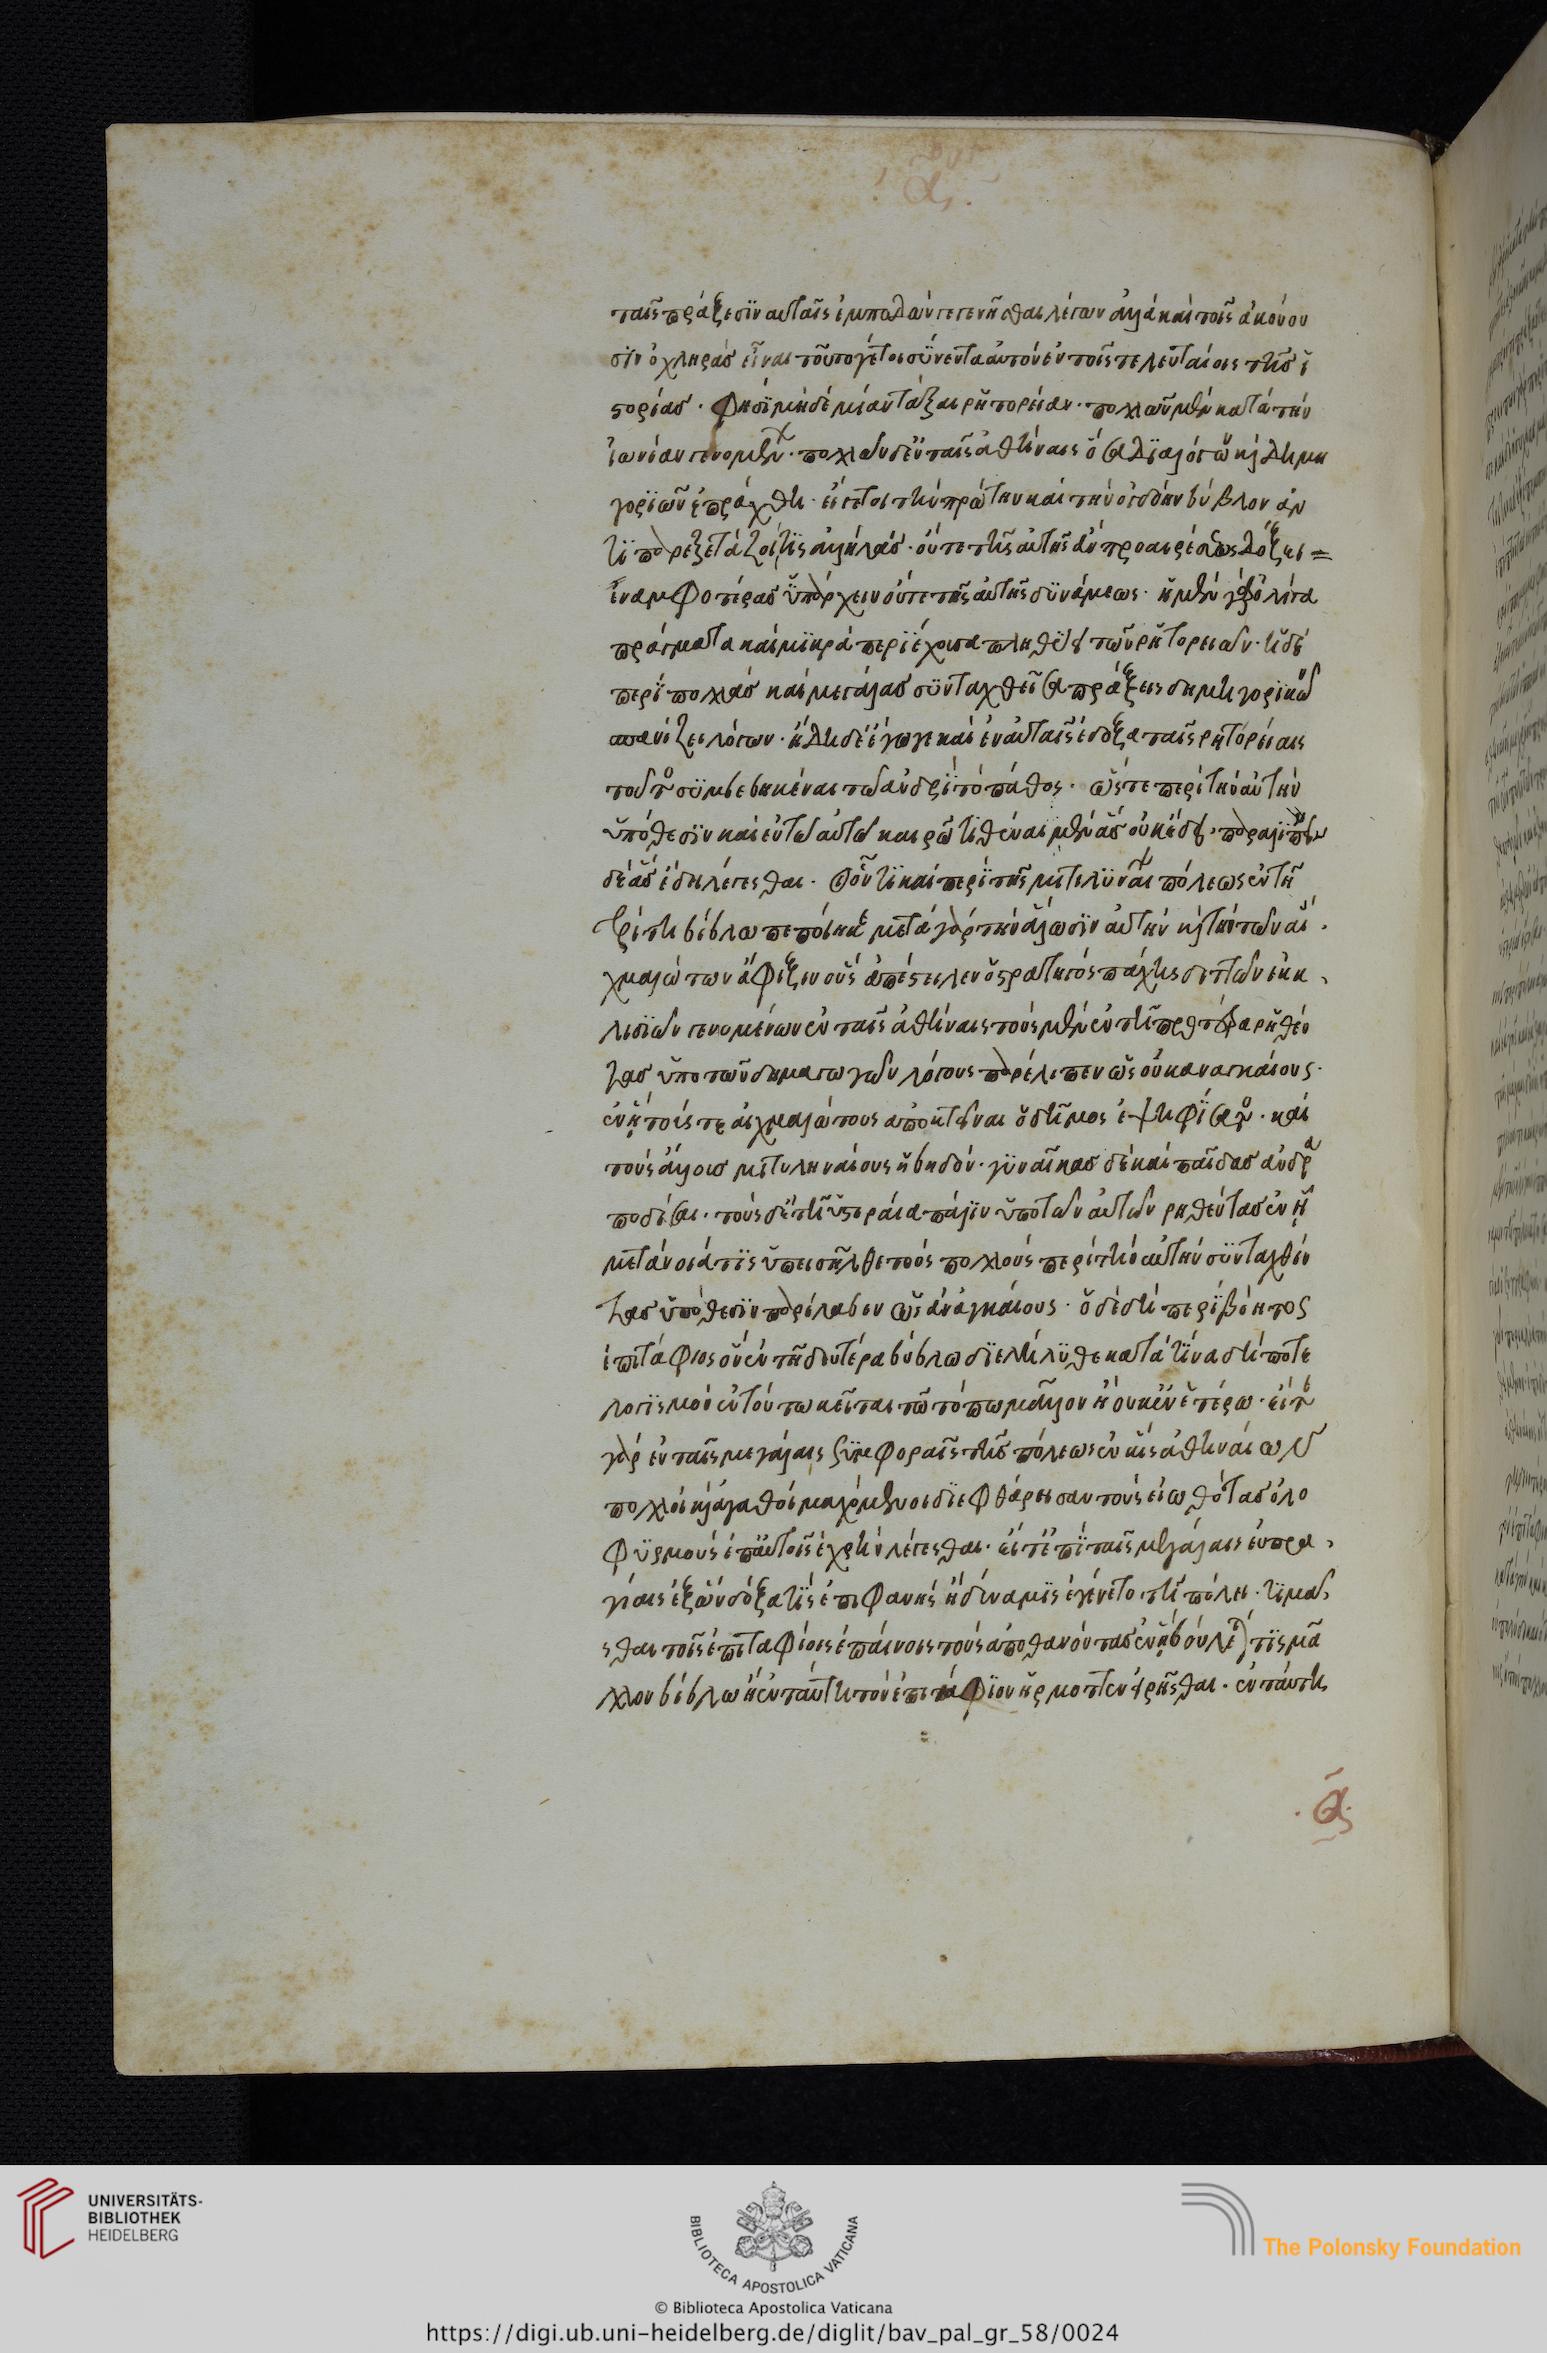 ταῖς πράξεσϊν αὐταῖς ἐμποδὼν γεγενῆσθαι λέγων ἀλλὰ καὶ τοῖς ἀκούου
σϊν ὀχληρὰς εἶναι τοῦτογέτοι συνέντα αὐτὸν ἐν τοῖς τελευταίοις τῆς ἱ
στορίας · φησὶ μηδεμίαν τάξαι ρητορείαν · πολλῶν μὲν κατὰ τὴν
ἰωνίαν γενομένων · πολλῶν δ' ἐν ταῖς ἀθήναις ὅσα διαλόγων κὶ δημη
γορϊῶν ἐπράχθη · εἴγετοι τὴν πρώτην καὶ τὴν ὀγδόην βύβλον ἀν
τϊπαρεξετάζοι τϊς ἀλλήλας · οὔτε τῆς αὐτῆς ἂν προαιρέσεως δόξει =
εν ἀμφοτέρας ὑπάρχειν οὔτε τῆς αὐτῆς δυνάμεως · ἡ μὲν γὰρ ὀλίγα
πράγματα καὶ μϊκρὰ περϊέχουσα πληθύει τῶν ρητορειῶν · ἡ δὲ
περὶ πολλὰς καὶ μεγάλας συνταχθεῖσα πράξεις δημηγορϊκῶν
σπανίζει λόγων · ἤδη δὲ ἔγωγε καὶ ἐν αὐταῖς ἔδοξα ταῖς ρητορείαις
τοῦτο συμβεβηκέναι τῶ ἀνδρὶ τὸ πάθος · ὥστε περὶ τὴν αὐτὴν
ὑπόθεσϊν καὶ ἐν τῶ αὐτῶ καιρῶ τϊθέναι μὲν ἃς οὐκ ἔδει · παραλϊπεῖν
δὲ ἃς ἔδει λέγεσθαι · οἷόν τϊ καὶ περὶ τῆς μιτυληναίων πόλεως ἐν τῆ
τρίτη βίβλω πεποίηκε μετὰ γὰρ τὴν ἅλωσϊν αὐτὴν κὶ τὴν τῶν αἰ ·
χμαλώτων ἄφιξιν οὓς ἀπέστειλεν ὁ στρατηγὸς πάχης διττῶν ἐκκ ·
λησϊῶν γενομένων ἐν ταῖς ἀθήναις τοὺς μὲν ἐν τῆ προτέρα ρηθέν
τας ὑπὸ τῶν δημαγωγῶν λόγους παρέλειπεν ὡς οὐκ αναγκαίους ·
ἐν ᾗ τούς τε αἰχμαλώτους αποκτεῖναι ὁ δῆμος ἐψηφίσατο · καὶ
τοὺς ἄλλους μιτυληναίους ἡβηδόν · γυναῖκας δὲ καὶ παῖδας ἀνδρα
ποδίσαι · τοὺς δ' ἐν τῆ ὑστεραία πάλιν ὑπὸ τῶν αὐτῶν ρηθέντας ἐν ᾗ
μετάνοιά τϊς ὑπεισῆλθε τοὺς πολλοὺς περὶ τὴν αὐτὴν συνταχθέν
τας ὑπόθεσϊν παρέλαβεν ὡς ἀναγκαίους · ὁ δὲ δὴ περϊβόητος
ἐπϊτάφιος ὃν ἐν τῆ δευτέρα βύβλω διελήλυθε κατὰ τίνα δή ποτε
λογϊσμὸν ἐν τούτω κεῖται τῶ τόπω μᾶλλον ἢ οὐκ ἐν ἑτέρω · εἴτε
γὰρ ἐν ταῖς μεγάλαις ξυμφοραῖς τῆς πόλεως ἐν αἷς ἀθηναίων
πολλοὶ κὶ ἀγαθοὶ μαχόμενοι διεφθάρησαν τοὺς εἰωθότας ὀλο
φϋρμοὺς ἐπ' αὐτοῖς ἐχρῆν λέγεσθαι · εἴτε ἐπὶ ταῖς μεγάλαις εὐπρα ·
γίαις ἐξ ὧν δόξα τὶς ἐπιφανὴς ἢ δύναμϊς ἐγένετο τῆ πόλει · τϊμᾶσ
σθαι τοῖς ἐπιταφίοις ἐπαίνοις τοὺς αποθανόντας ἐν ᾗ βούλεταί τϊς μᾶ
λλον βίβλω ἢ ἐν ταύτη τὸν ἐπιτάφιον ἥρμοττεν εἰρῆσθαι · ἐν ταύτη
UNIVERSITÄTS-
BIBLIOTHEK
HEIDELBERG
BIBLIOTECA APOSTOLICA VATICANA
The Polonsky Foundation
© Biblioteca Apostolica Vaticana
https://digi.ub.uni-heidelberg.de/diglit/bav_pal_gr_58/0024